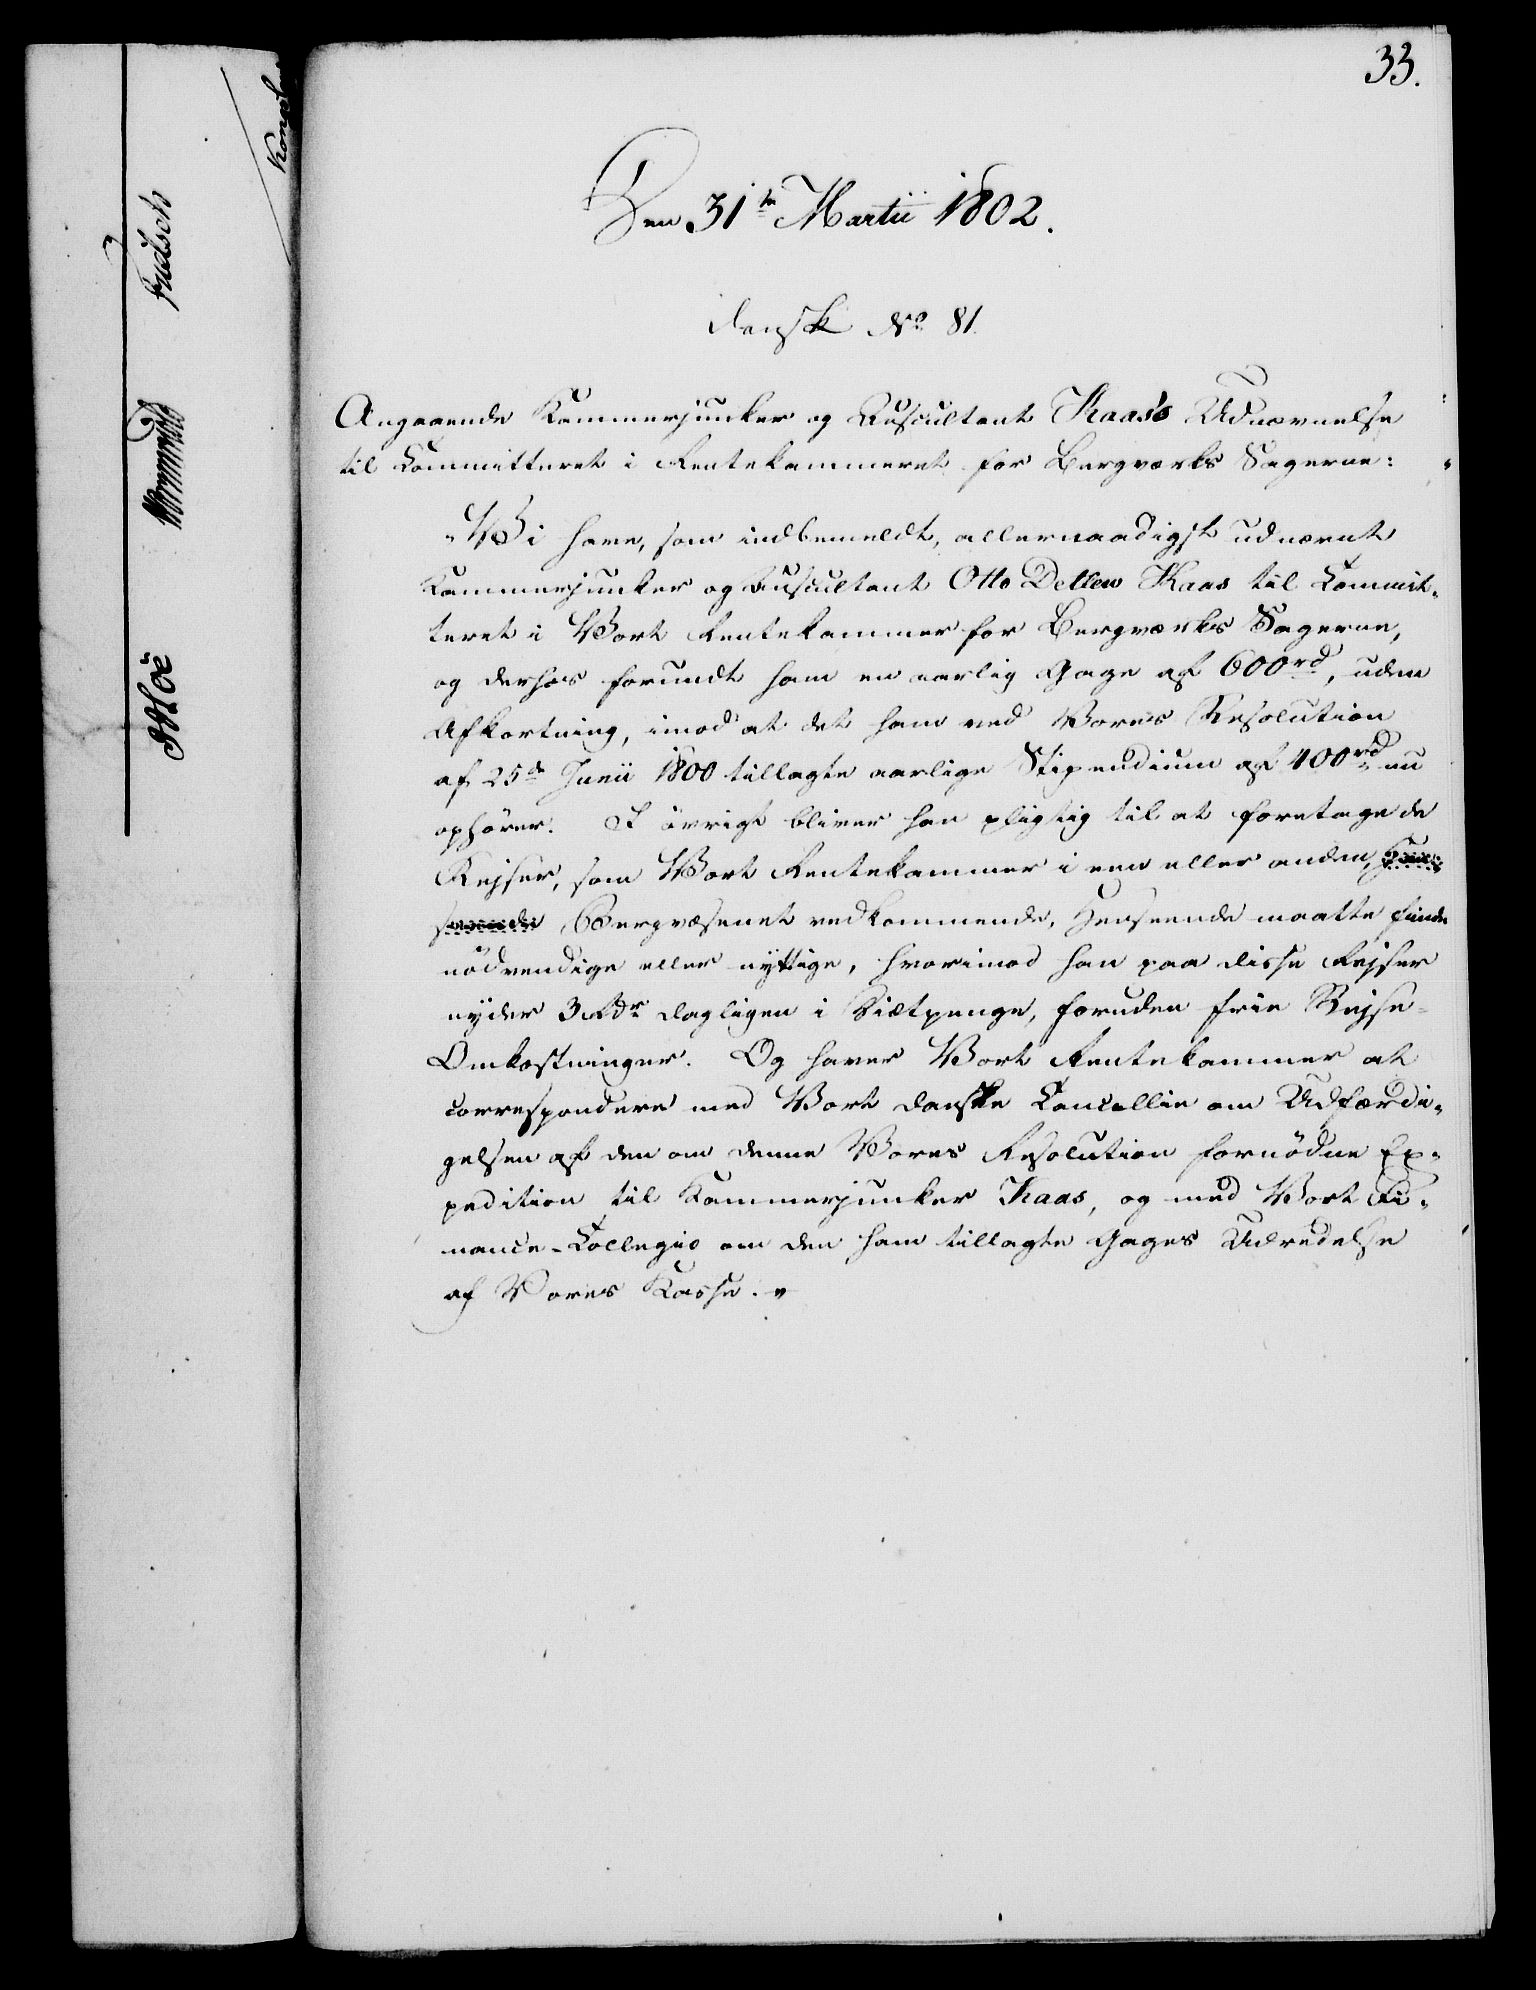 33.
Den 31te Martii 1802.
dansk No 81.
Angaaende Kammerjunker og Auscultant Kaas's Udnævnelse
til Committeret i Rentekammeret for Bergværks Sagerne:
"Vi have, som indbemeldt, allernaadigst udnævnt
Kammerjunker og Auscultant Otto Detlew Kaas til Commit-
teret i Vort Rentekammer for Bergværks Sagerne,
og derhos forundt ham en aarlig Gage af 600rd, uden
Afkortning, imod at det ham ved Vores Resolution
af 25de Junii 1800 tillagte aarlige Stipendium af 400rd nu
ophører. I øvrigt bliver han pligtig til at foretage de
Rejser, som Vort Rentekammer i een eller anden,
Bergvæsenet vedkommende, Henseende maatte finde
nödvendige eller nyttige, hvorimod han paa disse Rejser
nyder 3 Rdr dagligen i Diætpenge, foruden frie Rejse-
Omkostninger. Og haver Vort Rentekammer at
correspondere med Vort danske Cancellie om Udfærdi-
gelsen af den om denne Vores Resolution fornödne Ex-
pedition til Kammerjunker Kaas, og med Vort Fi-
nance-Collegio om den ham tillagte Gages Udredelse
af Vores Kasse."